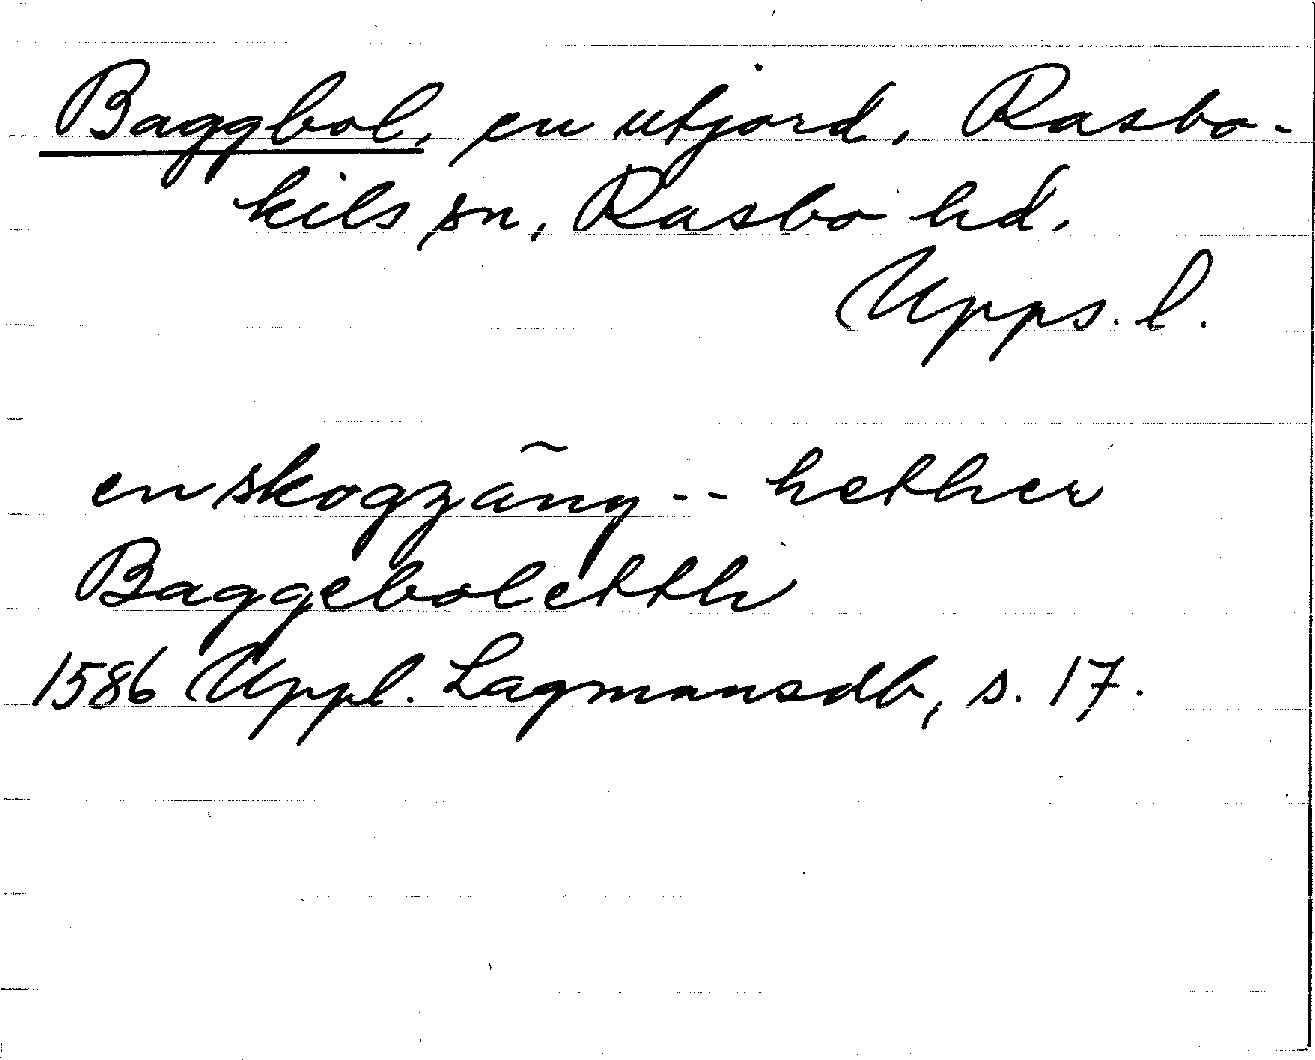 Baggbol, en utjord, Rasbo-
kils sn, Rasbo hd.
Upps. l.
en skogzäng -- hether
Baggeboletth
1586 Uppl. Lagmansdb, s. 17.